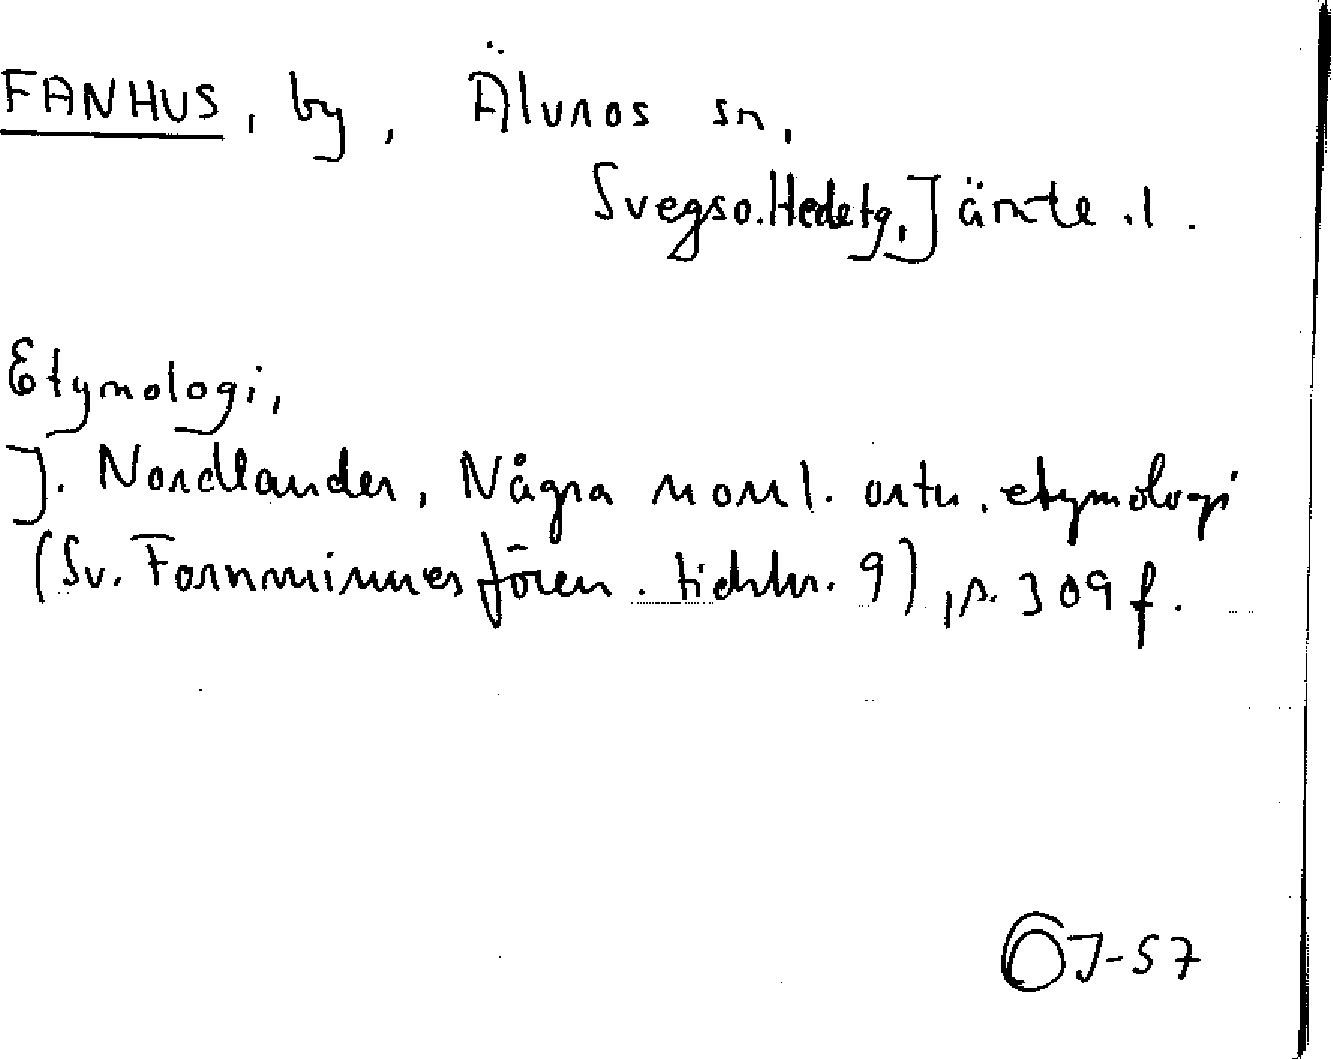 FANHUS, by, Älvros sn,
Svegs o. Hedetg, Jämte.l.
Etymologi,
J. Nordlander, Några norrl. ortn. etymologi
(Sv. Fornminnesfören. tidskr. 9), s. 309 f.
OJ-57